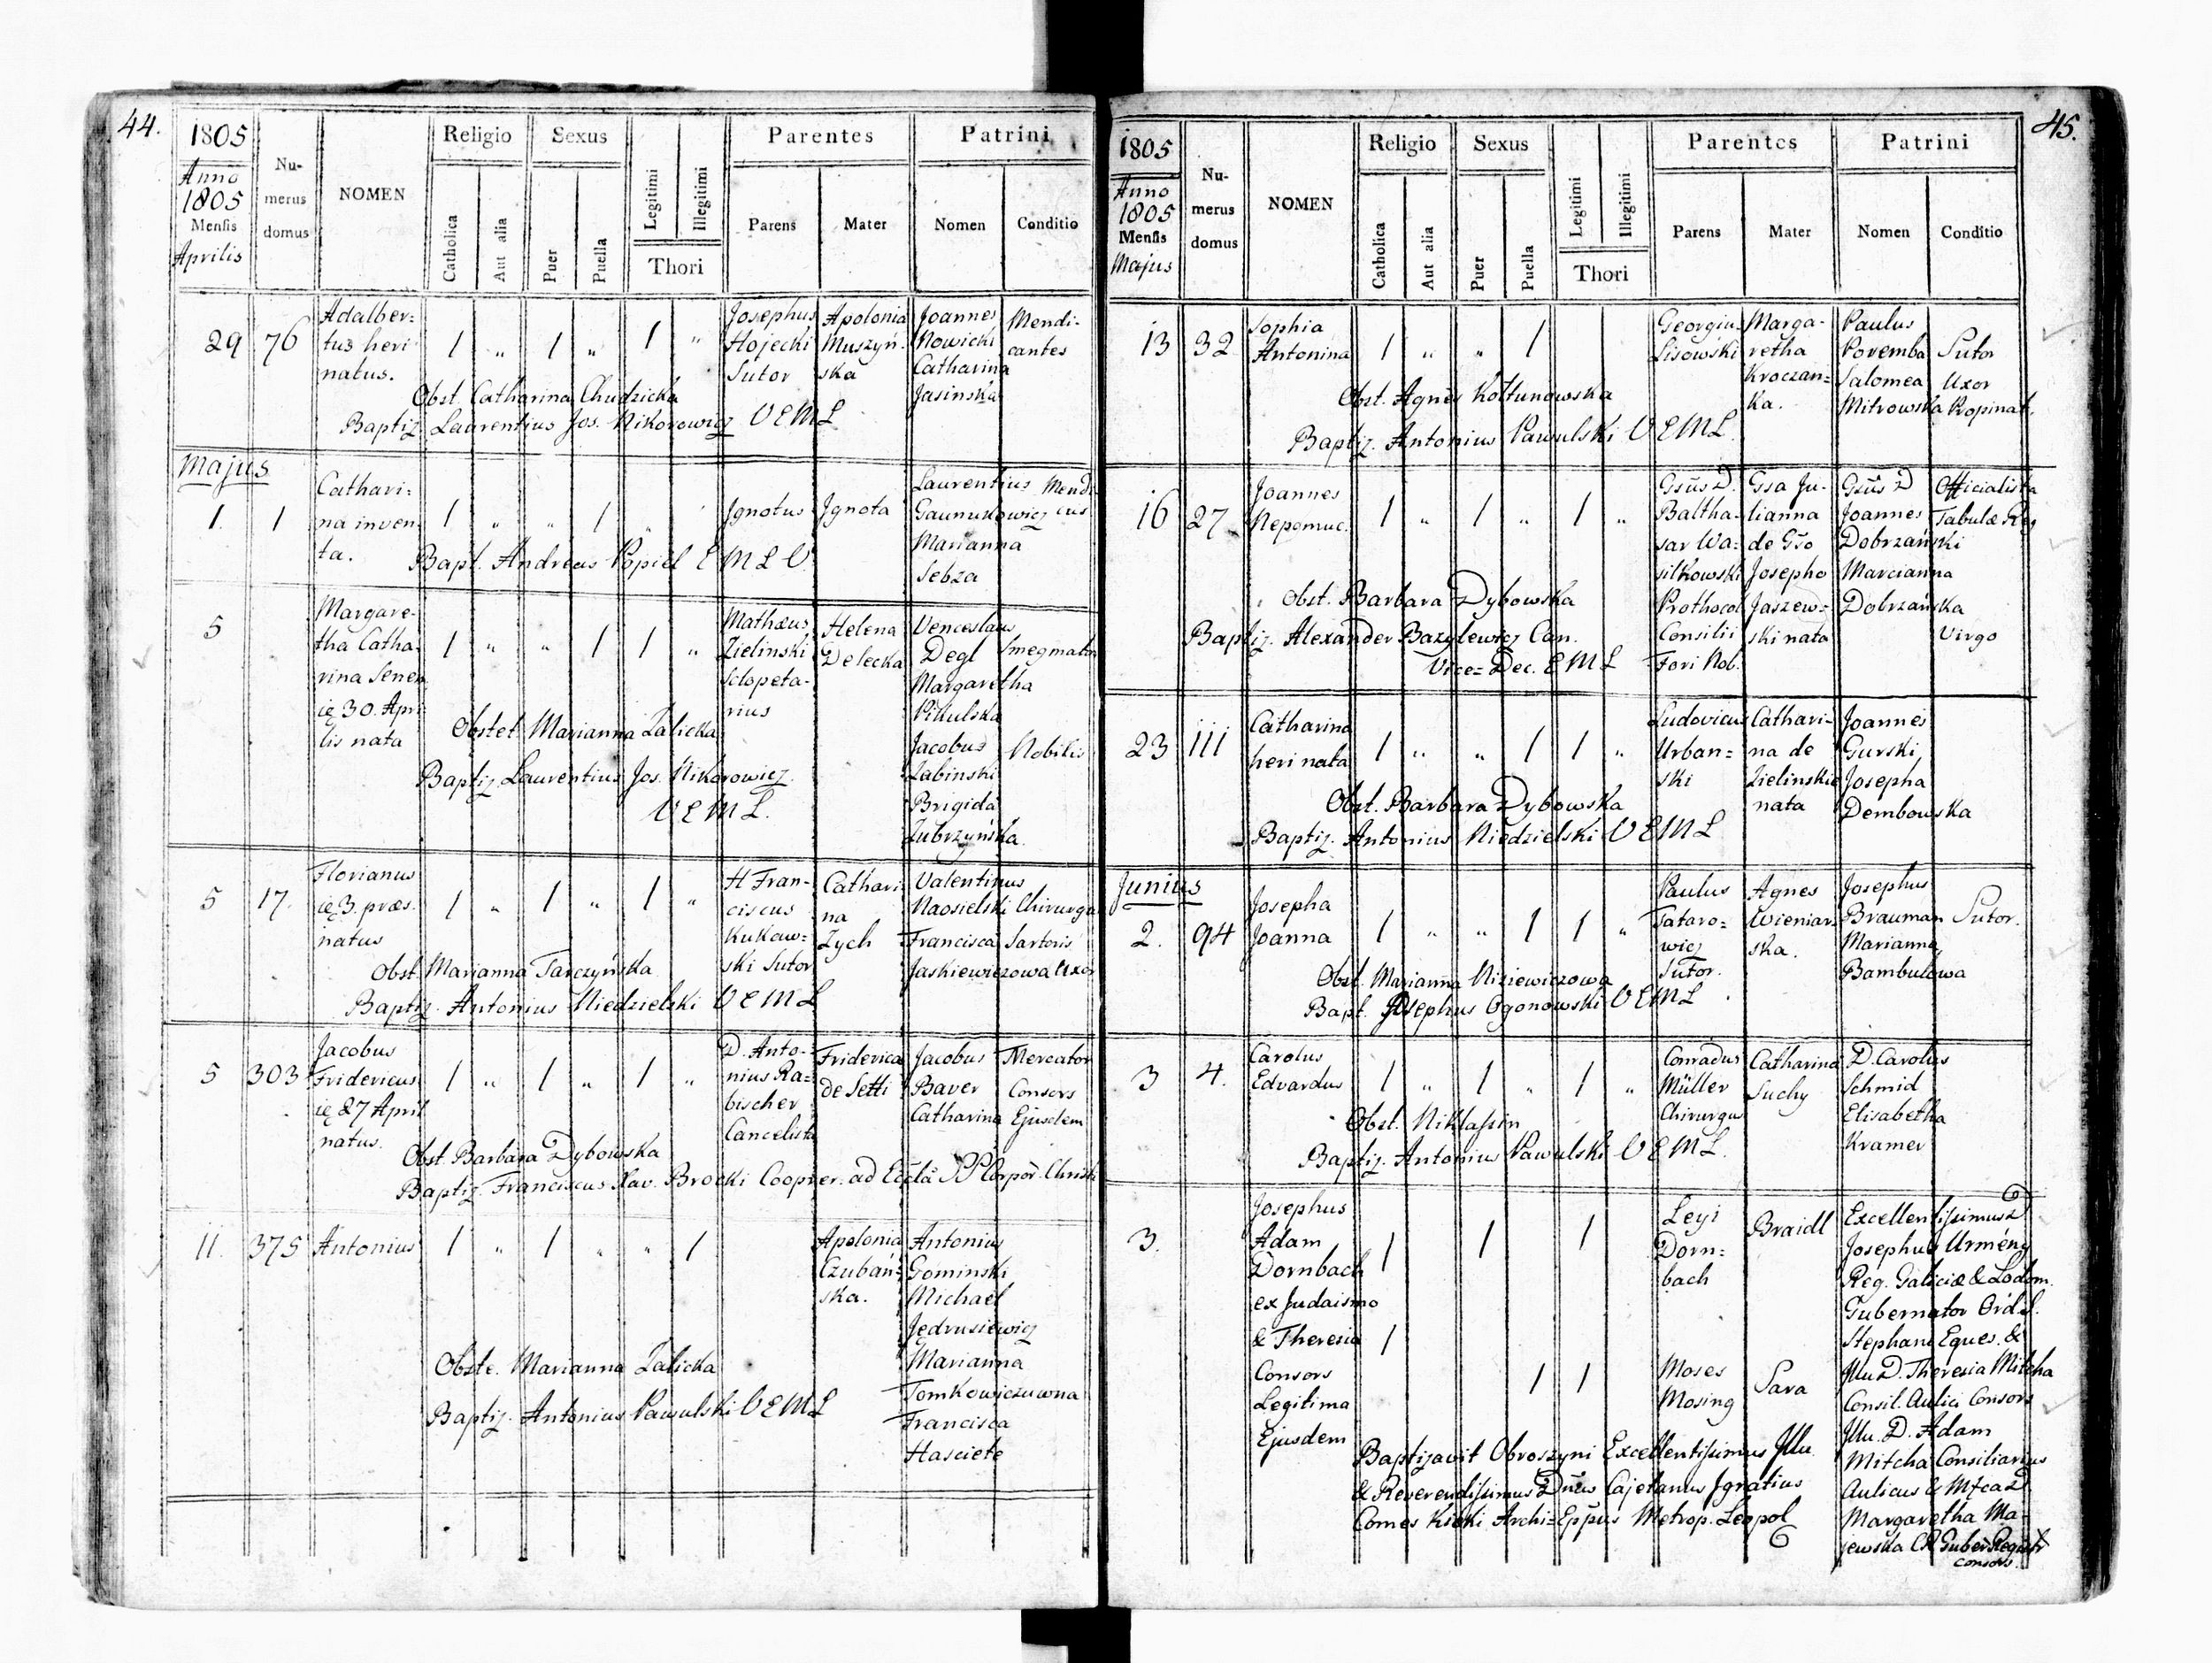 44.
1805
Anno
1805
Mensis
Aprilis
Nu-
merus
domus
NOMEN
Religio
Catholica
Aut alia
Sexus
Puer
Puella
Legitimi
Illegitimi
Thori
Parentes
Parens
Mater
Patrini
Nomen
Conditio
29
76
Adalber=
tus heri
natus.
/ " / " / "
Josephus
Hojecki
Sutor
Apolonia
Muszyń-
ska
Joannes
Nowicki
Catharina
Jasinska
Mendi-
cantes
Obst. Catharina Chudzicka
Baptiz. Laurentius Jos. Nikorowicz V E M L
Majus
1.
1
Cathari=
na inven
ta.
/ " " / "
Ignotus
Ignota
Laurentius
Gaunukowicz
Marianna
Sebza
Mendi
cus
Bapt. Andreas Popiel E M L V.
5
Margare-
tha Catha-
rina Senen.
ię 30. Apri
lis nata
/ " " / / "
Mathæus
Zielinski
Sclopeta-
rius
Helena
Delecka
Venceslaus
Degl
Margaretha
Pikulska
Jacobus
Labinski
Brigida
Zubrzyńska.
Smegmato
Nobilis
Obstet. Marianna Zalicka
Baptiz. Laurentius Jos. Nikorowicz.
V E M L.
5
17.
Florianus
ię 3. præs.
natus
/ " / " / "
H Fran-
ciscus
Kukaw=
ski Sutor
Cathari
na
Zych
Valentinus
Naosielski
Francisca
Jaskiewiczowa
Chirurgu
Sartoris
Uxor
Obst. Marianna Tarczyńska
Baptiz. Antonius Niedzielski V E M L
5
303
Jacobus
Fridericus
ię 27 April
natus.
/ " / " / "
D. Anto-
nius Ra=
bischer
Cancelista
Friderica
de Setti
Jacobus
Baver
Catharina
Mercator
Consors
Ejusdem
Obst. Barbara Dybowska
Baptiz. Franciscus Xav. Brocki Cooper. ad Eccla PP Corpor. Christi
11.
375
Antonius
/ " / " " /
Apolonia
Czubań=
ska.
Antonius
Gominski
Michael
Jędrusiewicz
Marianna
Tomkowiczuwna
Francisca
Hasciete
Obste. Marianna Zalicka
Baptiz. Antonius Pawulski V E M L
45.
1805
Anno
1805
Mensis
Majus
Nu-
merus
domus
NOMEN
Religio
Catholica
Aut alia
Sexus
Puer
Puella
Legitimi
Illegitimi
Thori
Parentes
Parens
Mater
Patrini
Nomen
Conditio
13
32
Sophia
Antonina
/ " " /
Georgiu-
Lisowski
Marga-
retha
Kroczan=
ka.
Paulus
Poremba
Salomea
Mitrowska
Sutor
Uxor
Propinat.
Obst. Agnes Kołtunowska
Baptiz. Antonius Pawulski V E M L.
16
27
Joannes
Nepomuc.
/ " / " / "
Gsus D.
Baltha-
sar Wa=
silkowski
Prothocol
Consilii
Fori Nob.
Gsa Ju-
lianna
de Gso
Josepho
Jaszew=
ski nata
Gsus D
Joannes
Dobrzański
Marcianna
Dobrzańska
Officialista
Tabulæ Reg
Virgo
Obst. Barbara Dybowska
Baptiz. Alexander Bazylewicz Can.
Vice=Dec. E M L
23
111
Catharina
heri nata
/ " " / / "
Ludovicus
Urban=
ski
Cathari-
na de
Zielinskie
nata
Joannes
Gurski
Josepha
Dembowska
Obst. Barbara Dybowska
Baptiz. Antonius Niedzielski V E M L
Junius
2.
94
Josepha
Joanna
/ " " / / "
Paulus
Tataro=
wicz
Sutor.
Agnes
Wieniar
ska.
Josephus
Brauman
Marianna
Bambulowa
Sutor.
Obst. Marianna Niziewiczowa
Bapt. Josephus Ogonowski V E M L
3
4.
Carolus
Edvardus
/ " / " / "
Conradus
Müller
Chirurgus
Catharina
Suchy
D. Carolus
Schmid
Elisabetha
Kramer
Obst. Niklassin
Baptiz. Antonius Pawulski V E M L.
3.
Josephus
Adam
Dornbach
ex Judaismo
& Theresia
Consors
Legitima
Ejusdem
/ / /
/ / /
Leyi
Dorn=
bach
Braidl
Moses
Mosing
Sara
Excellentissimus D
Josephus Urmény
Reg. Galiciæ & Lodom.
Gubernator Ord. S.
Stephani Eques. &
Illu D. Theresia Mitcha
Consil. Aulici Consors
Illu. D. Adam
Mitcha Consiliarius
Aulicus & Mfca D
Margaretha Ma-
jewska CR Guber Registr
consors.
Baptizavit Obroszyni Excellentissimus Illu.
& Reverendissimus Dnus Cajetanus Ignatius
Comes Kicki Archi=Eppus Metrop. Leopol